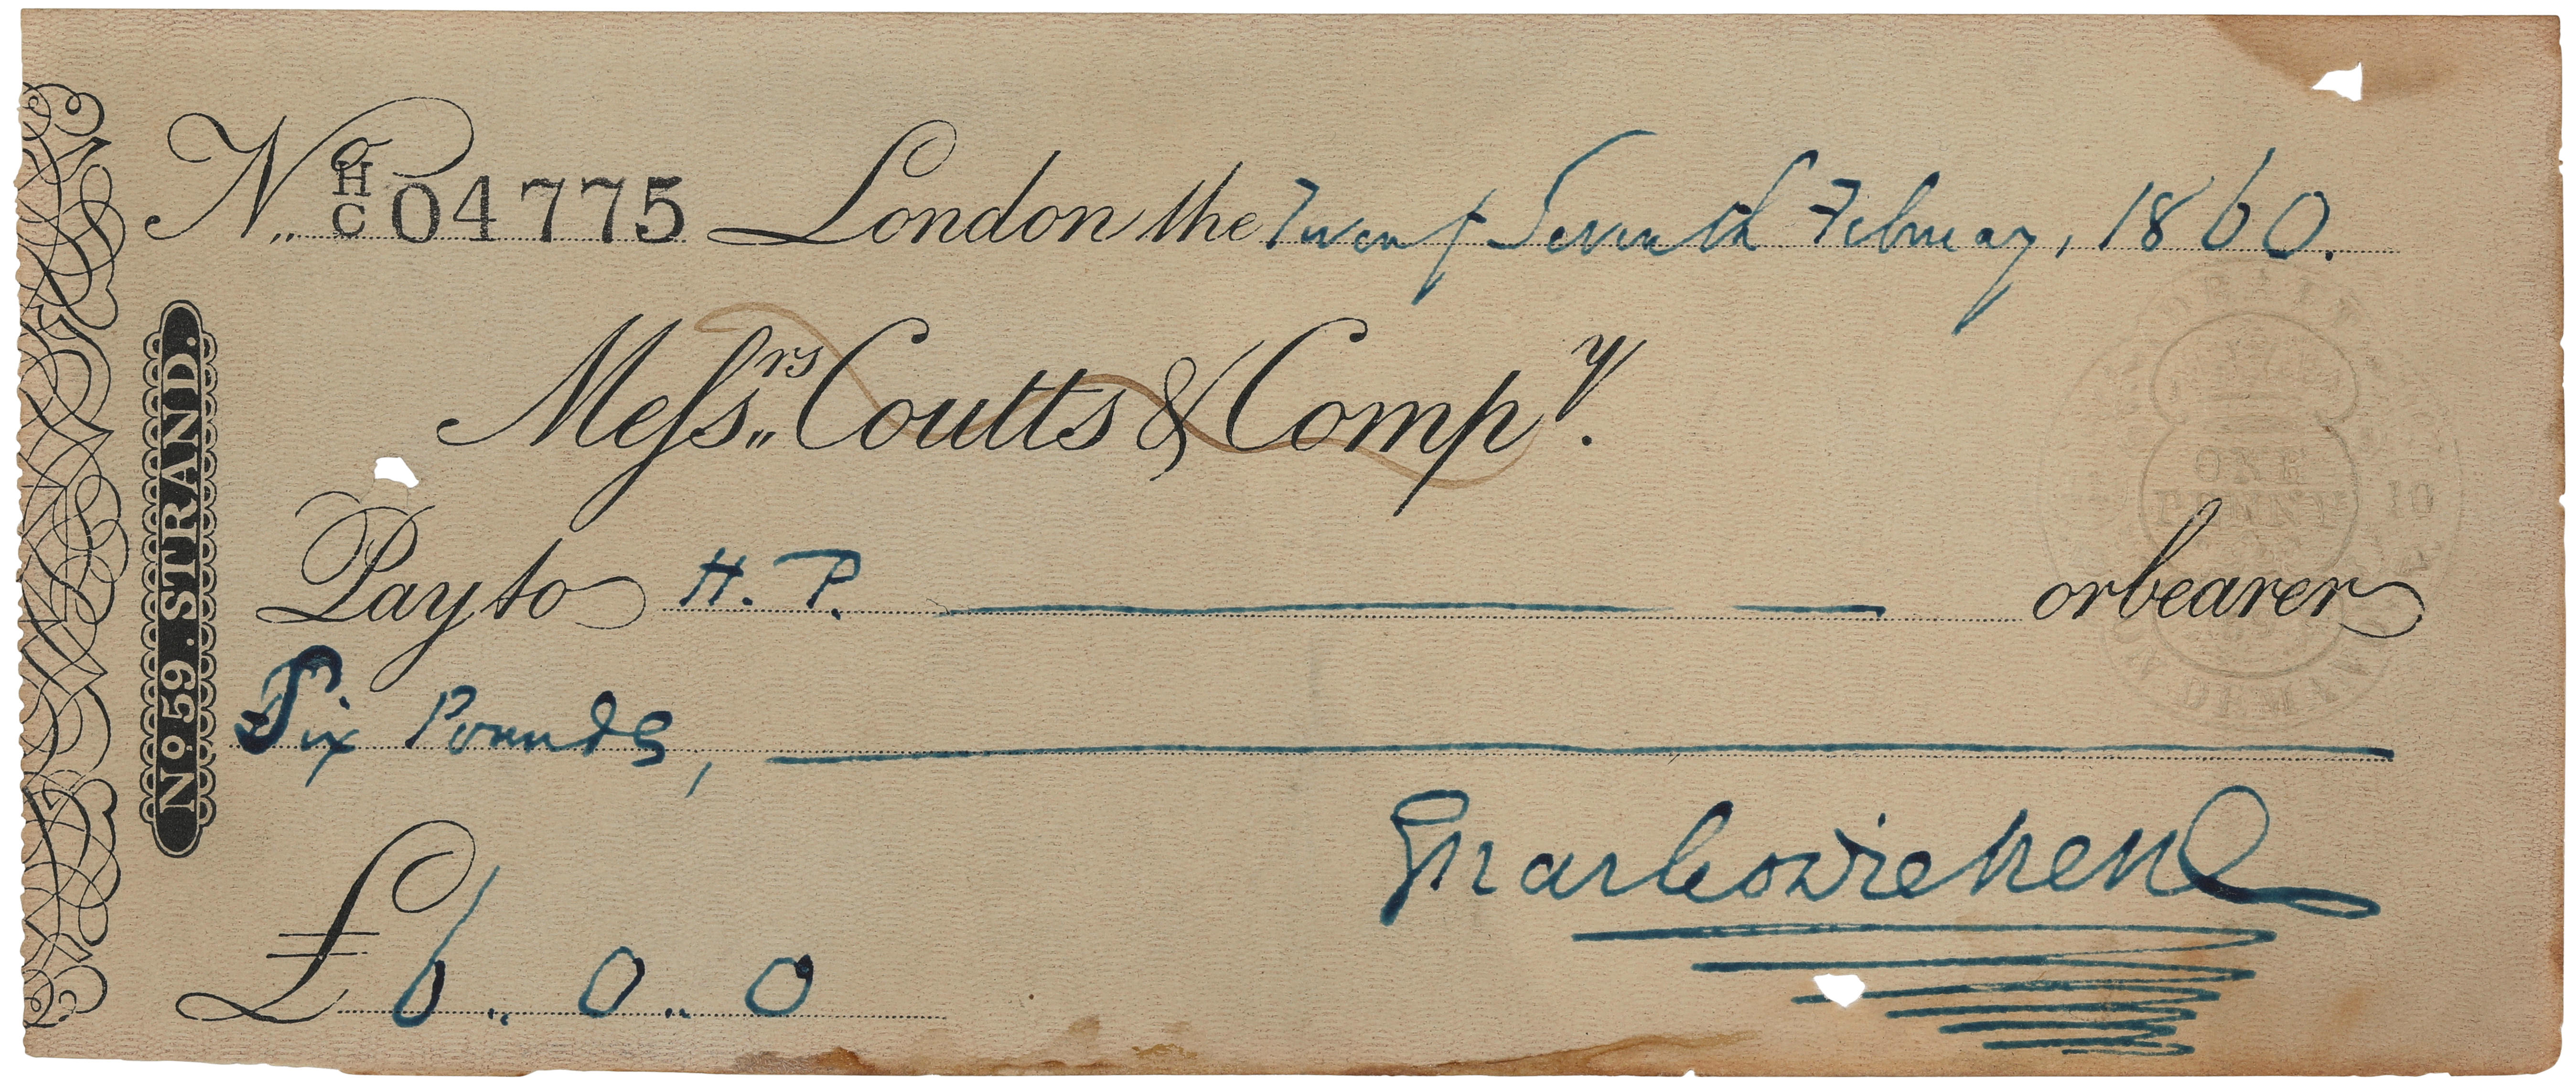 No. H/C 04775 London the Twenty Seventh February, 1860.
Messrs. Coutts & Compy.
Pay to H. P. or bearer
Six Pounds,
£6.. 0.. 0
No 59. STRAND.
ONE
PENNY